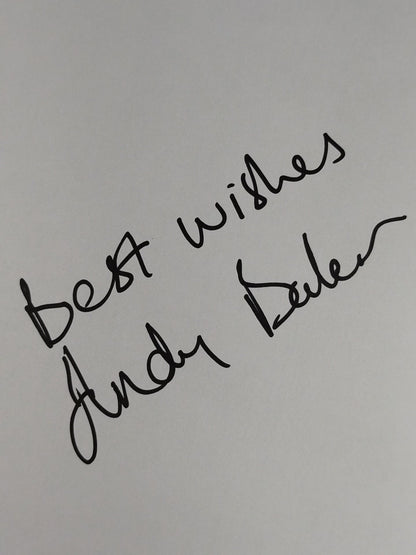 Best wishes
Andy Baker